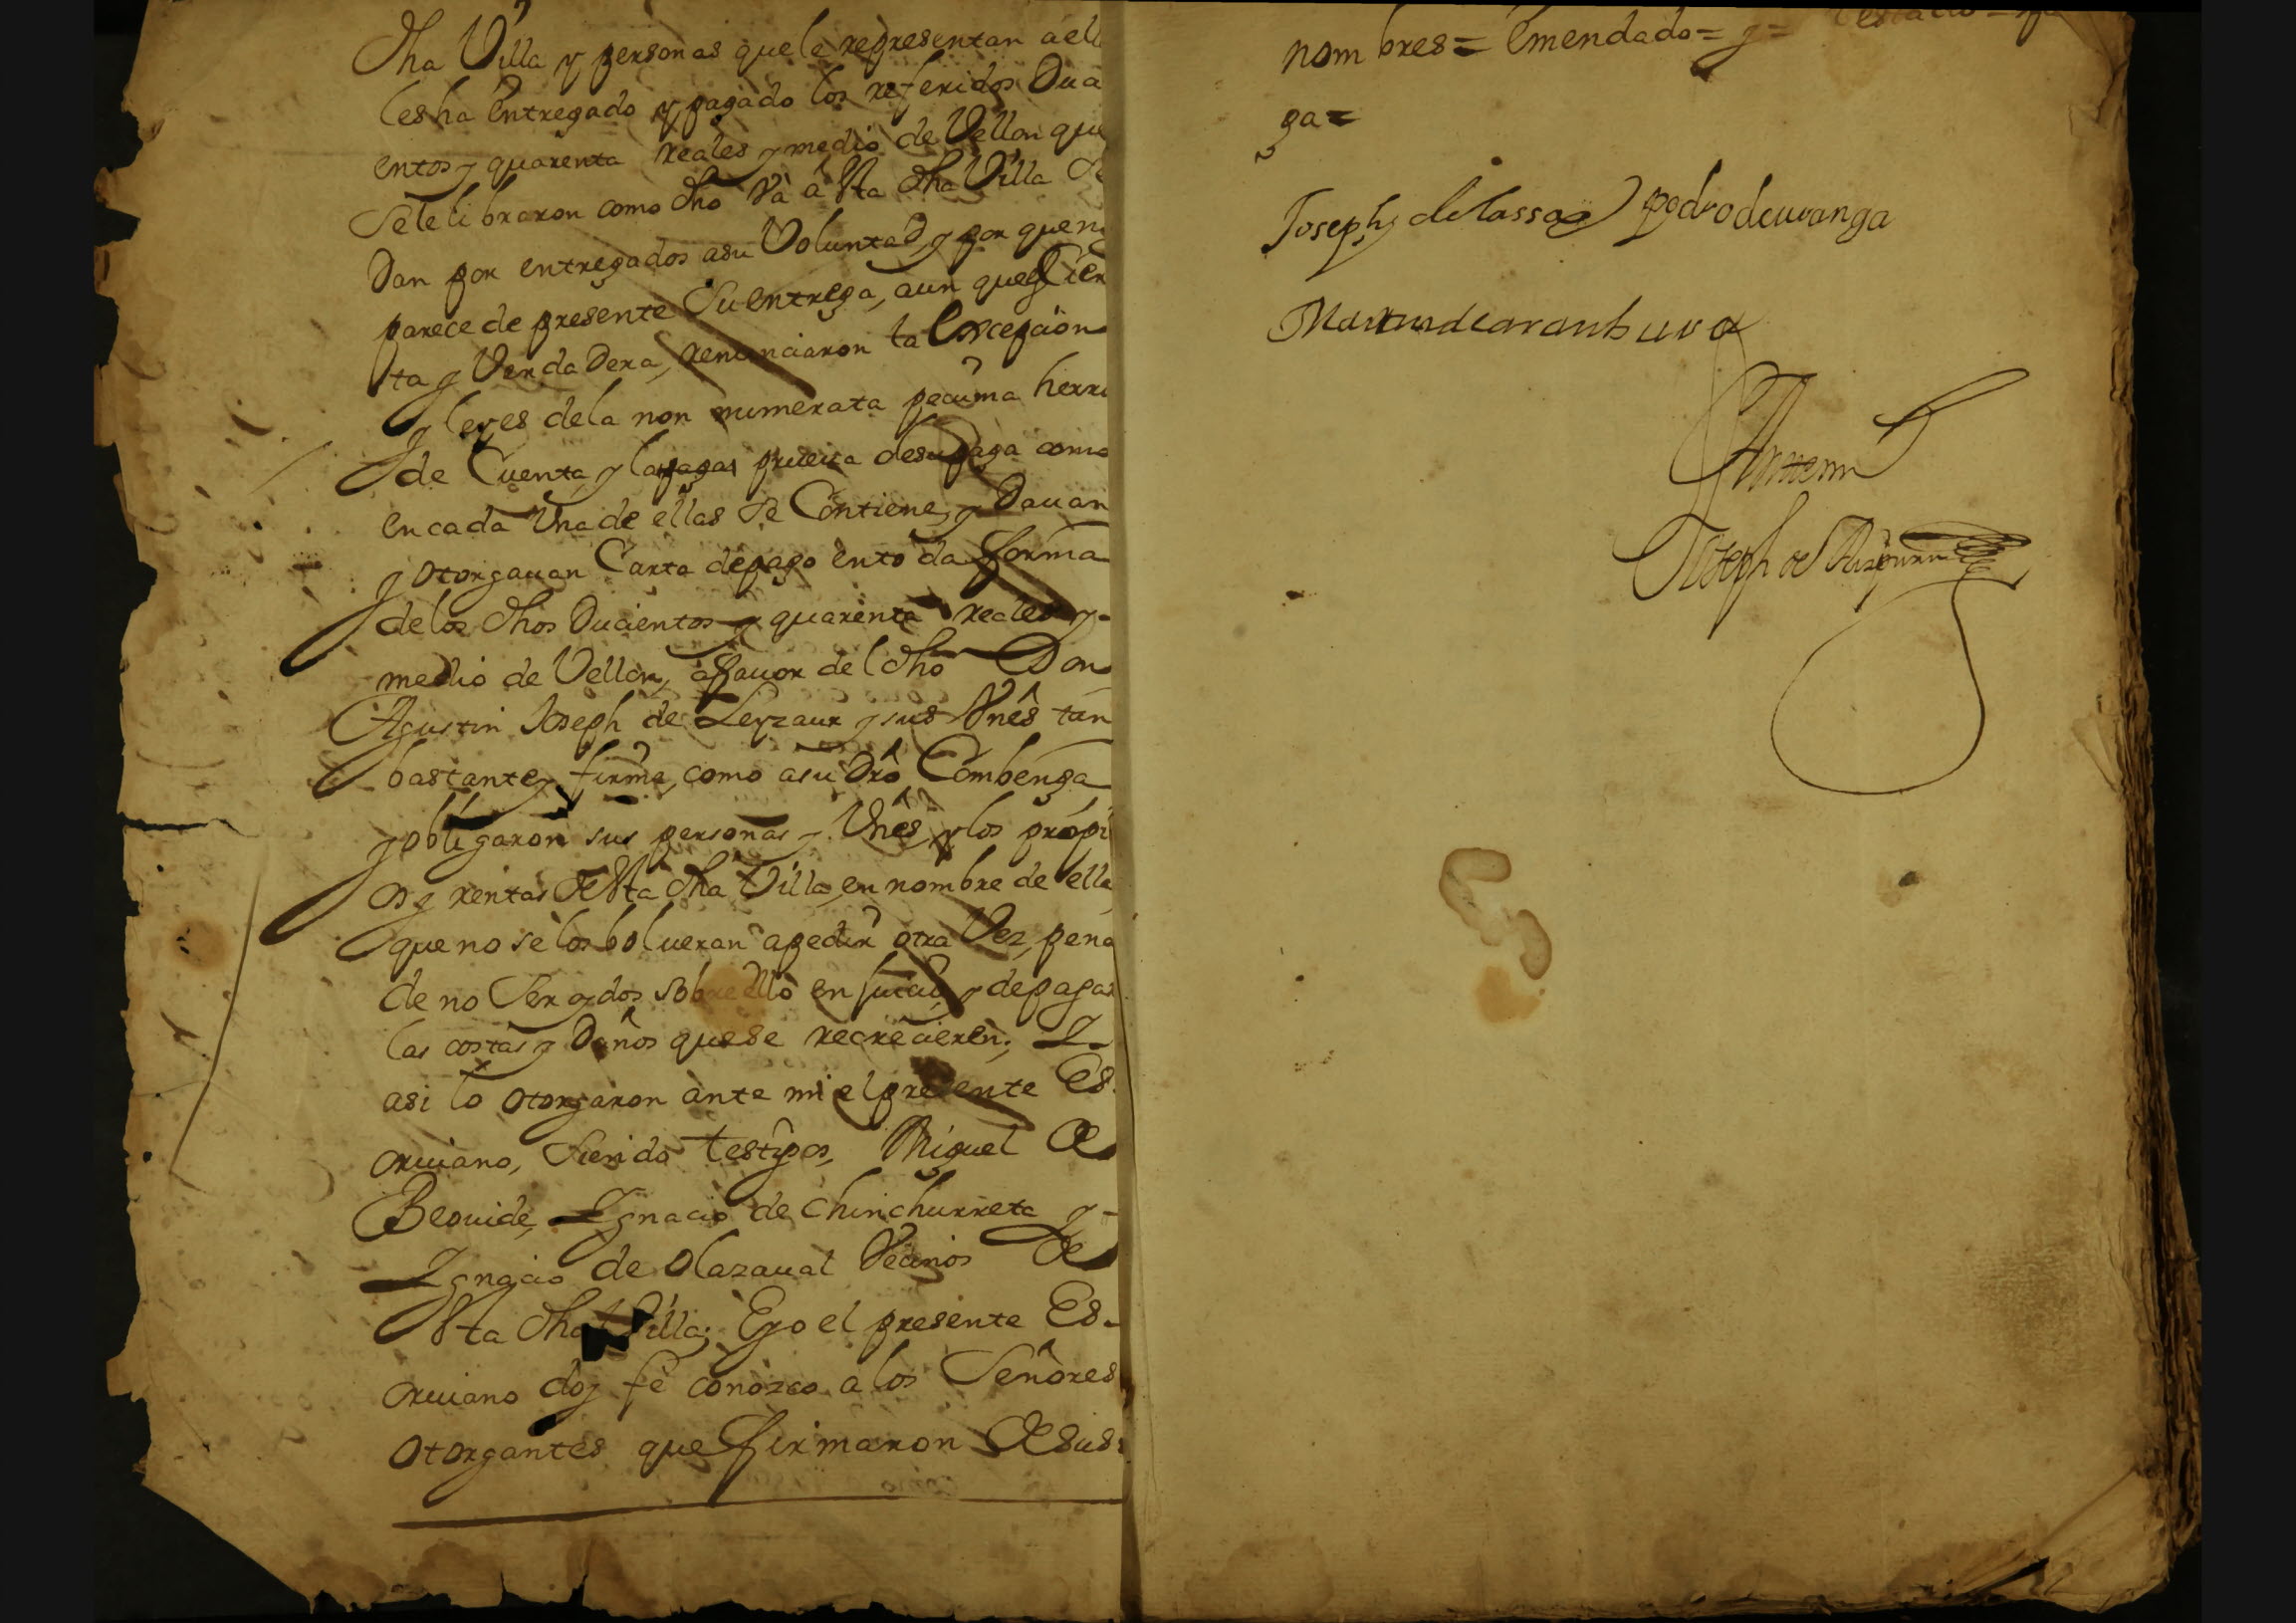 dha Villa y personas que le representan a ell
les ha entregado y pagado los referidos Du a
entos y quarenta reales y medio de Vellon que
se le libraron como dho va a Sta dha Villa de
Dan por entregados a su Voluntad y por que no
parece de presente su entrega, aun que es Cier
ta y Verdadera, renunciaron la Excepcion
y leyes de la non numerata pecunia herro
de Cuenta, y la paga, prueva de su paga como
en cada Una de ellas se Contiene, y Davan
y otorgavan Carta de pago en toda forma
de los dhos Ducientos y quarenta reales y-
medio de Vellon, a favor del dho Don
Agustin Joseph de Leyzaur y sus Vnes tan
bastante y firme, como a su Dro Combenga
y obligaron sus personas y Vnes, y los propi
os y rentas de Sta dha Villa, en nombre de ella
que no se los bolueran a pedir otra Vez, pena
de no Ser oydos sobre ello en Juicio, y de pagar
las costas y Daños que se recrecieren; Y-
asi lo otorgaron ante mi el presente Es-
criuano, Siendo testigos, Miguel de
Beovide, Ygnacio de Chinchurreta y-
Ygnacio de Olazaual Vecinos de
Sta dha Villa; E yo el presente Es-
criuano doy fe conozco a los Señores
otorgantes que firmaron de sus
nombres = Emendado = y = testado =
ga =
Joseph de lassa Pedro de uranga
Martin de aramburu
Ante mi
Joseph de Aizpuru